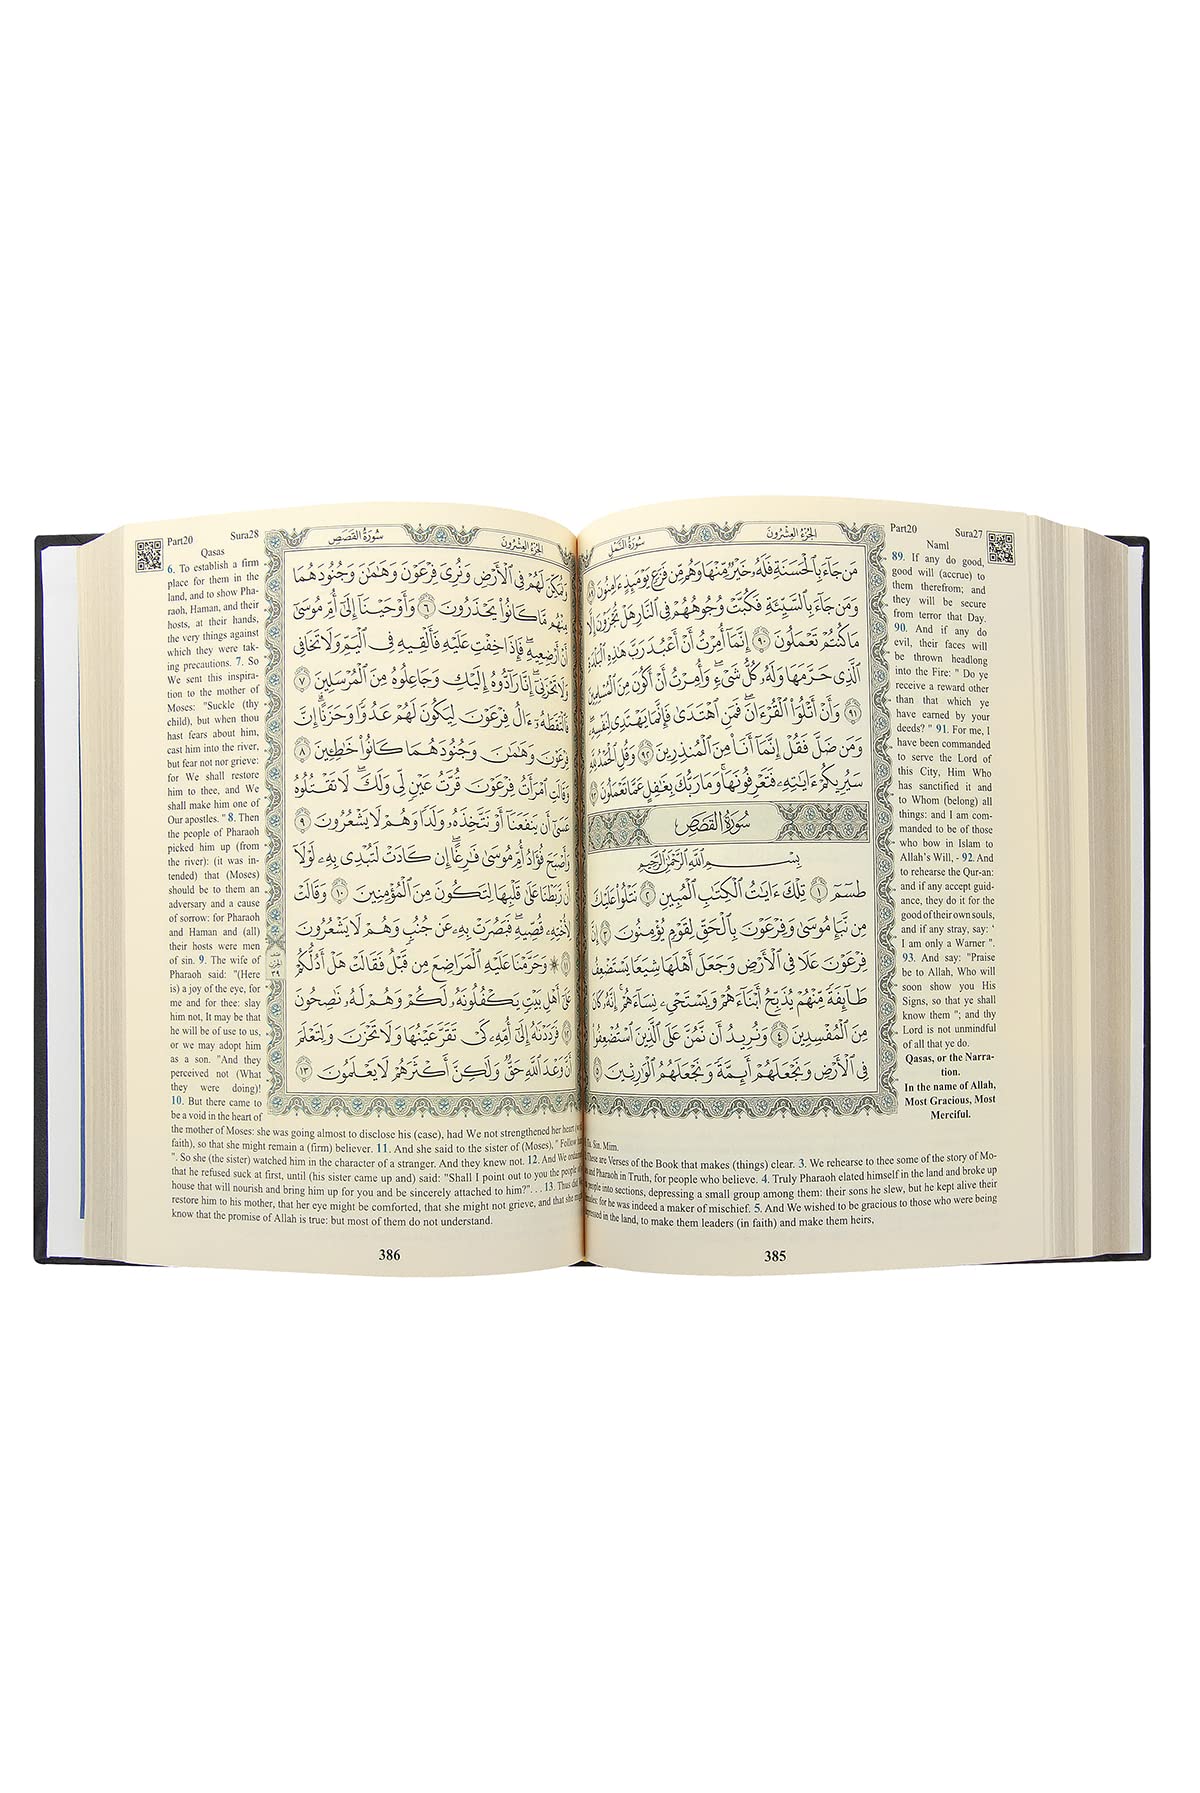 الجُزْءُ العِشْرُونَ سُورَةُ النَّمْلِ
مَن جَآءَ بِٱلْحَسَنَةِ فَلَهُۥ خَيْرٌ مِّنْهَا وَهُم مِّن فَزَعٍ يَوْمَئِذٍ ءَامِنُونَ ٨٩
وَمَن جَآءَ بِٱلسَّيِّئَةِ فَكُبَّتْ وُجُوهُهُمْ فِي ٱلنَّارِ هَلْ تُجْزَوْنَ إِلَّا
مَا كُنتُمْ تَعْمَلُونَ ٩٠ إِنَّمَآ أُمِرْتُ أَنْ أَعْبُدَ رَبَّ هَٰذِهِ ٱلْبَلْدَةِ
ٱلَّذِي حَرَّمَهَا وَلَهُۥ كُلُّ شَيْءٍ ۖ وَأُمِرْتُ أَنْ أَكُونَ مِنَ ٱلْمُسْلِمِينَ
٩١ وَأَنْ أَتْلُوَا۟ ٱلْقُرْءَانَ ۖ فَمَنِ ٱهْتَدَىٰ فَإِنَّمَا يَهْتَدِي لِنَفْسِهِۦ ۖ
وَمَن ضَلَّ فَقُلْ إِنَّمَآ أَنَا۠ مِنَ ٱلْمُنذِرِينَ ٩٢ وَقُلِ ٱلْحَمْدُ لِلَّهِ
سَيُرِيكُمْ ءَايَٰتِهِۦ فَتَعْرِفُونَهَا ۚ وَمَا رَبُّكَ بِغَٰفِلٍ عَمَّا تَعْمَلُونَ ٩٣
سُورَةُ القَصَصِ
بِسْمِ اللَّهِ الرَّحْمَٰنِ الرَّحِيمِ
طسٓمٓ ١ تِلْكَ ءَايَٰتُ ٱلْكِتَٰبِ ٱلْمُبِينِ ٢ نَتْلُوا۟ عَلَيْكَ
مِن نَّبَإِ مُوسَىٰ وَفِرْعَوْنَ بِٱلْحَقِّ لِقَوْمٍ يُؤْمِنُونَ ٣ إِنَّ
فِرْعَوْنَ عَلَا فِي ٱلْأَرْضِ وَجَعَلَ أَهْلَهَا شِيَعًا يَسْتَضْعِفُ
طَآئِفَةً مِّنْهُمْ يُذَبِّحُ أَبْنَآءَهُمْ وَيَسْتَحْيِۦ نِسَآءَهُمْ ۚ إِنَّهُۥ كَانَ
مِنَ ٱلْمُفْسِدِينَ ٤ وَنُرِيدُ أَن نَّمُنَّ عَلَى ٱلَّذِينَ ٱسْتُضْعِفُوا۟
فِي ٱلْأَرْضِ وَنَجْعَلَهُمْ أَئِمَّةً وَنَجْعَلَهُمُ ٱلْوَٰرِثِينَ ٥
Part20 Sura27
Naml
89. If any do good,
good will (accrue) to
them therefrom; and
they will be secure
from terror that Day.
90. And if any do
evil, their faces will
be thrown headlong
into the Fire: " Do ye
receive a reward other
than that which ye
have earned by your
deeds? " 91. For me, I
have been commanded
to serve the Lord of
this City, Him Who
has sanctified it and
to Whom (belong) all
things: and I am com-
manded to be of those
who bow in Islam to
Allah's Will, - 92. And
to rehearse the Qur-an:
and if any accept guid-
ance, they do it for the
good of their own souls,
and if any stray, say: '
I am only a Warner ".
93. And say: "Praise
be to Allah, Who will
soon show you His
Signs, so that ye shall
know them "; and thy
Lord is not unmindful
of all that ye do.
Qasas, or the Narra-
tion.
In the name of Allah,
Most Gracious, Most
Merciful.
Sin. Mim.
These are Verses of the Book that makes (things) clear. 3. We rehearse to thee some of the story of Mo-
and Pharaoh in Truth, for people who believe. 4. Truly Pharaoh elated himself in the land and broke up
people into sections, depressing a small group among them: their sons he slew, but he kept alive their
for he was indeed a maker of mischief. 5. And We wished to be gracious to those who were being
in the land, to make them leaders (in faith) and make them heirs,
385
الجُزْءُ العِشْرُونَ سُورَةُ القَصَصِ
وَنُمَكِّنَ لَهُمْ فِي ٱلْأَرْضِ وَنُرِيَ فِرْعَوْنَ وَهَٰمَٰنَ وَجُنُودَهُمَا
مِنْهُم مَّا كَانُوا۟ يَحْذَرُونَ ٦ وَأَوْحَيْنَآ إِلَىٰٓ أُمِّ مُوسَىٰٓ
أَنْ أَرْضِعِيهِ ۖ فَإِذَا خِفْتِ عَلَيْهِ فَأَلْقِيهِ فِي ٱلْيَمِّ وَلَا تَخَافِي
وَلَا تَحْزَنِيٓ ۖ إِنَّا رَآدُّوهُ إِلَيْكِ وَجَاعِلُوهُ مِنَ ٱلْمُرْسَلِينَ ٧
فَٱلْتَقَطَهُۥٓ ءَالُ فِرْعَوْنَ لِيَكُونَ لَهُمْ عَدُوًّا وَحَزَنًا ۗ إِنَّ
فِرْعَوْنَ وَهَٰمَٰنَ وَجُنُودَهُمَا كَانُوا۟ خَٰطِـِٔينَ ٨
وَقَالَتِ ٱمْرَأَتُ فِرْعَوْنَ قُرَّتُ عَيْنٍ لِّي وَلَكَ ۖ لَا تَقْتُلُوهُ
عَسَىٰٓ أَن يَنفَعَنَآ أَوْ نَتَّخِذَهُۥ وَلَدًا وَهُمْ لَا يَشْعُرُونَ ٩
وَأَصْبَحَ فُؤَادُ أُمِّ مُوسَىٰ فَٰرِغًا ۖ إِن كَادَتْ لَتُبْدِي بِهِۦ لَوْلَآ
أَن رَّبَطْنَا عَلَىٰ قَلْبِهَا لِتَكُونَ مِنَ ٱلْمُؤْمِنِينَ ١٠ وَقَالَتْ
لِأُخْتِهِۦ قُصِّيهِ ۖ فَبَصُرَتْ بِهِۦ عَن جُنُبٍ وَهُمْ لَا يَشْعُرُونَ
١١ ۞ وَحَرَّمْنَا عَلَيْهِ ٱلْمَرَاضِعَ مِن قَبْلُ فَقَالَتْ هَلْ أَدُلُّكُمْ
عَلَىٰٓ أَهْلِ بَيْتٍ يَكْفُلُونَهُۥ لَكُمْ وَهُمْ لَهُۥ نَٰصِحُونَ
١٢ فَرَدَدْنَٰهُ إِلَىٰٓ أُمِّهِۦ كَيْ تَقَرَّ عَيْنُهَا وَلَا تَحْزَنَ وَلِتَعْلَمَ
أَنَّ وَعْدَ ٱللَّهِ حَقٌّ وَلَٰكِنَّ أَكْثَرَهُمْ لَا يَعْلَمُونَ ١٣
٣٩
Part20 Sura28
Qasas
6. To establish a firm
place for them in the
land, and to show Pha-
raoh, Haman, and their
hosts, at their hands,
the very things against
which they were tak-
ing precautions. 7. So
We sent this inspira-
tion to the mother of
Moses: "Suckle (thy
child), but when thou
hast fears about him,
cast him into the river,
but fear not nor grieve:
for We shall restore
him to thee, and We
shall make him one of
Our apostles. " 8. Then
the people of Pharaoh
picked him up (from
the river): (it was in-
tended) that (Moses)
should be to them an
adversary and a cause
of sorrow: for Pharaoh
and Haman and (all)
their hosts were men
of sin. 9. The wife of
Pharaoh said: "(Here
is) a joy of the eye, for
me and for thee: slay
him not, It may be that
he will be of use to us,
or we may adopt him
as a son. "And they
perceived not (What
they were doing)!
10. But there came to
be a void in the heart of
the mother of Moses: she was going almost to disclose his (case), had We not strengthened her heart
faith), so that she might remain a (firm) believer. 11. And she said to the sister of (Moses), " Follow
". So she (the sister) watched him in the character of a stranger. And they knew not. 12. And We
that he refused suck at first, until (his sister came up and) said: "Shall I point out to you the people of
house that will nourish and bring him up for you and be sincerely attached to him?". . . 13. Thus did
restore him to his mother, that her eye might be comforted, that she might not grieve, and that she
know that the promise of Allah is true: but most of them do not understand.
386